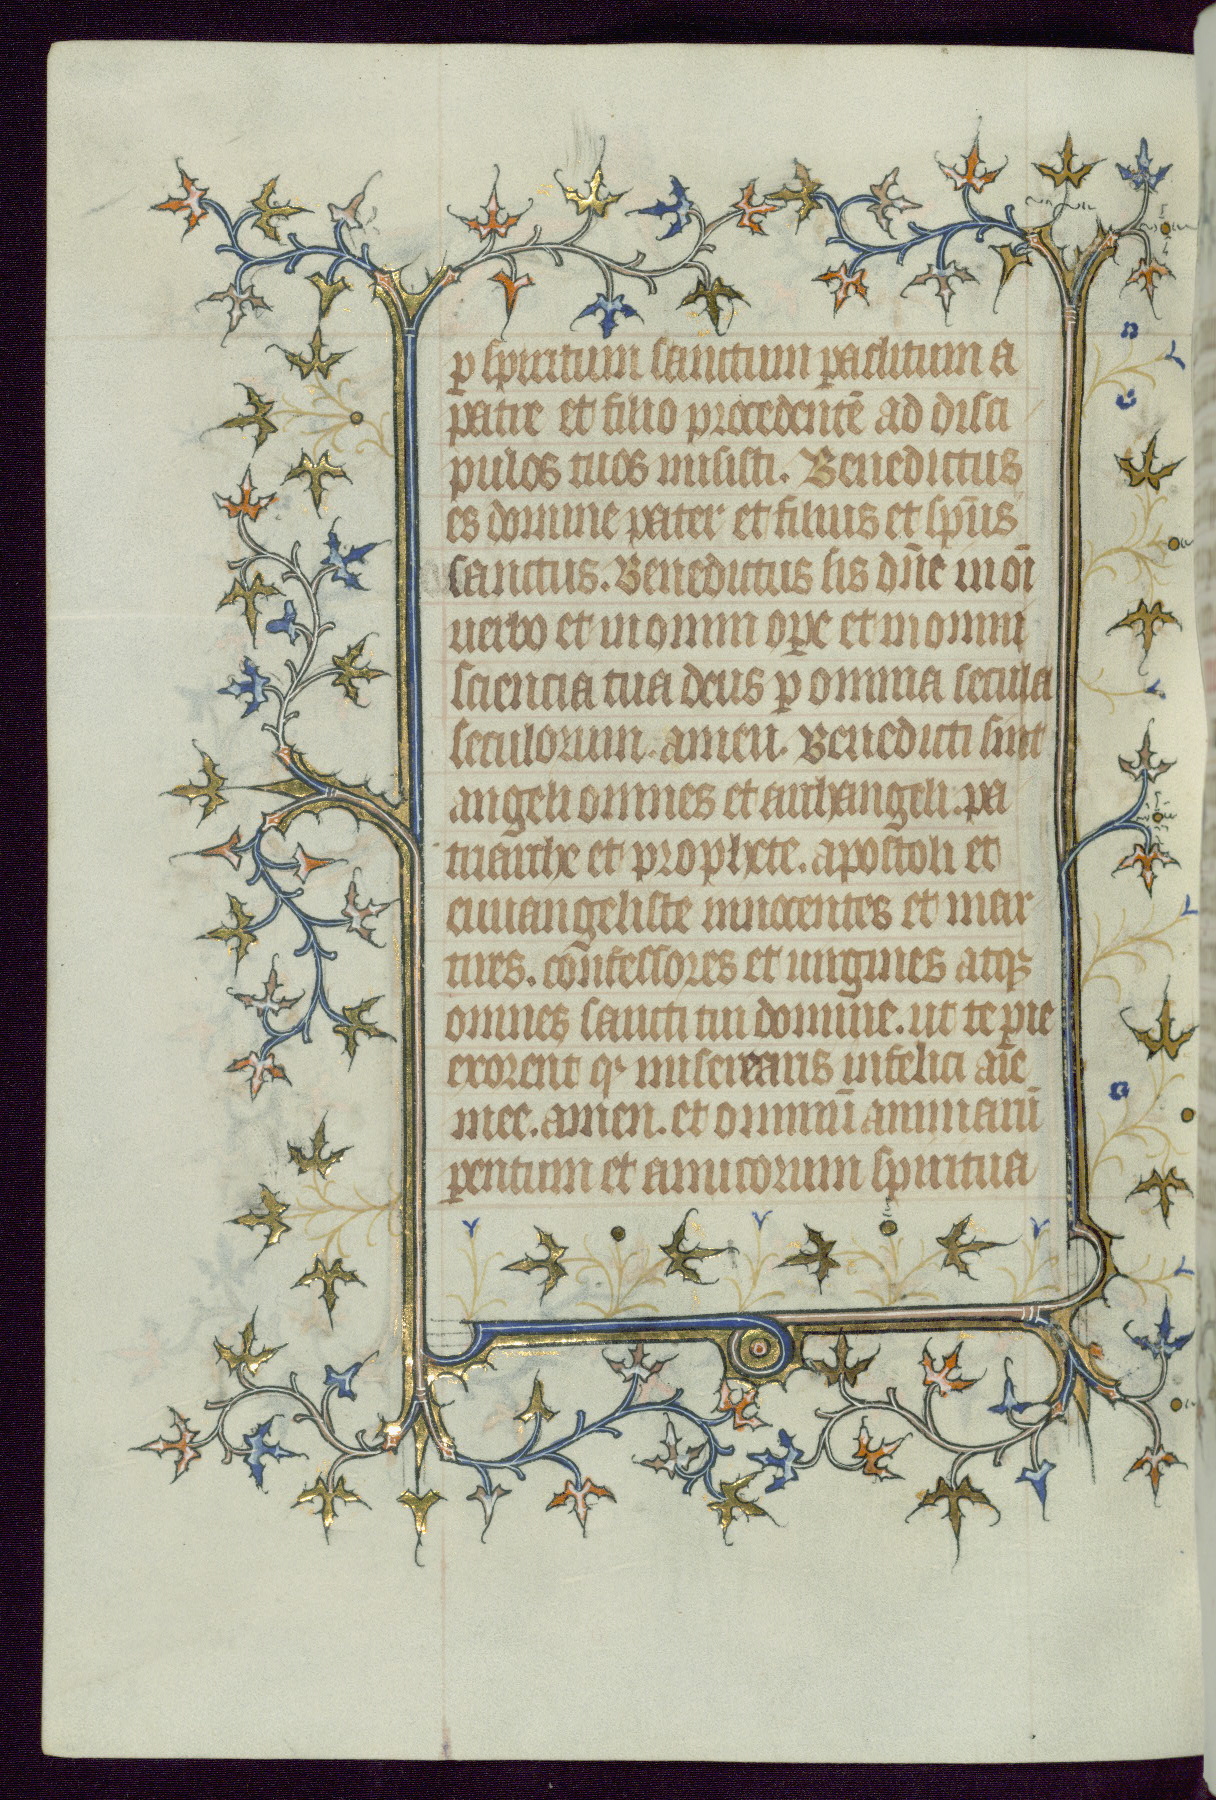 ꝑ spiritum sanctum paclitum a
patre et filio procedentē ad disci
pulos tuos misisti. Benedictus
es domine pater et filius et sp̄us
sanctus. Benedictus sis dn̄e in oī
uerbo et in omni oꝑe et in omni
sciencia tua deus ꝑ omnia secula
seculorum. amen. Benedicti sint
angeli omnes et archangeli. pa
triarche et prophete. apostoli et
euuangeliste innocentes et mar
tires. confessores et uirgines atqꝫ
omnes sancti tui domine. ut te pie
exorent qꝫ miserearis infelici aīe
mee. amen. et omniū animarū
ꝑentum et amicorum spiritua